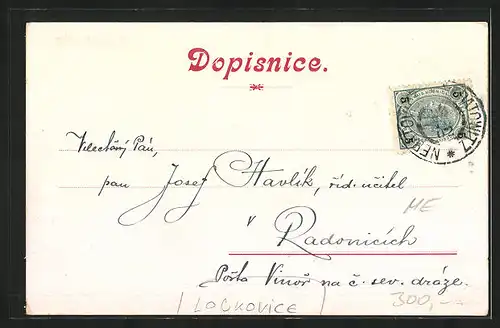 Dopisnice.
Velectěný Pán,
pan Josef Havlík, říd. učitel
v
Radonicích
Pošta Vinoř na č. sev. dráze.
ME
LOCKOVICE
300,--